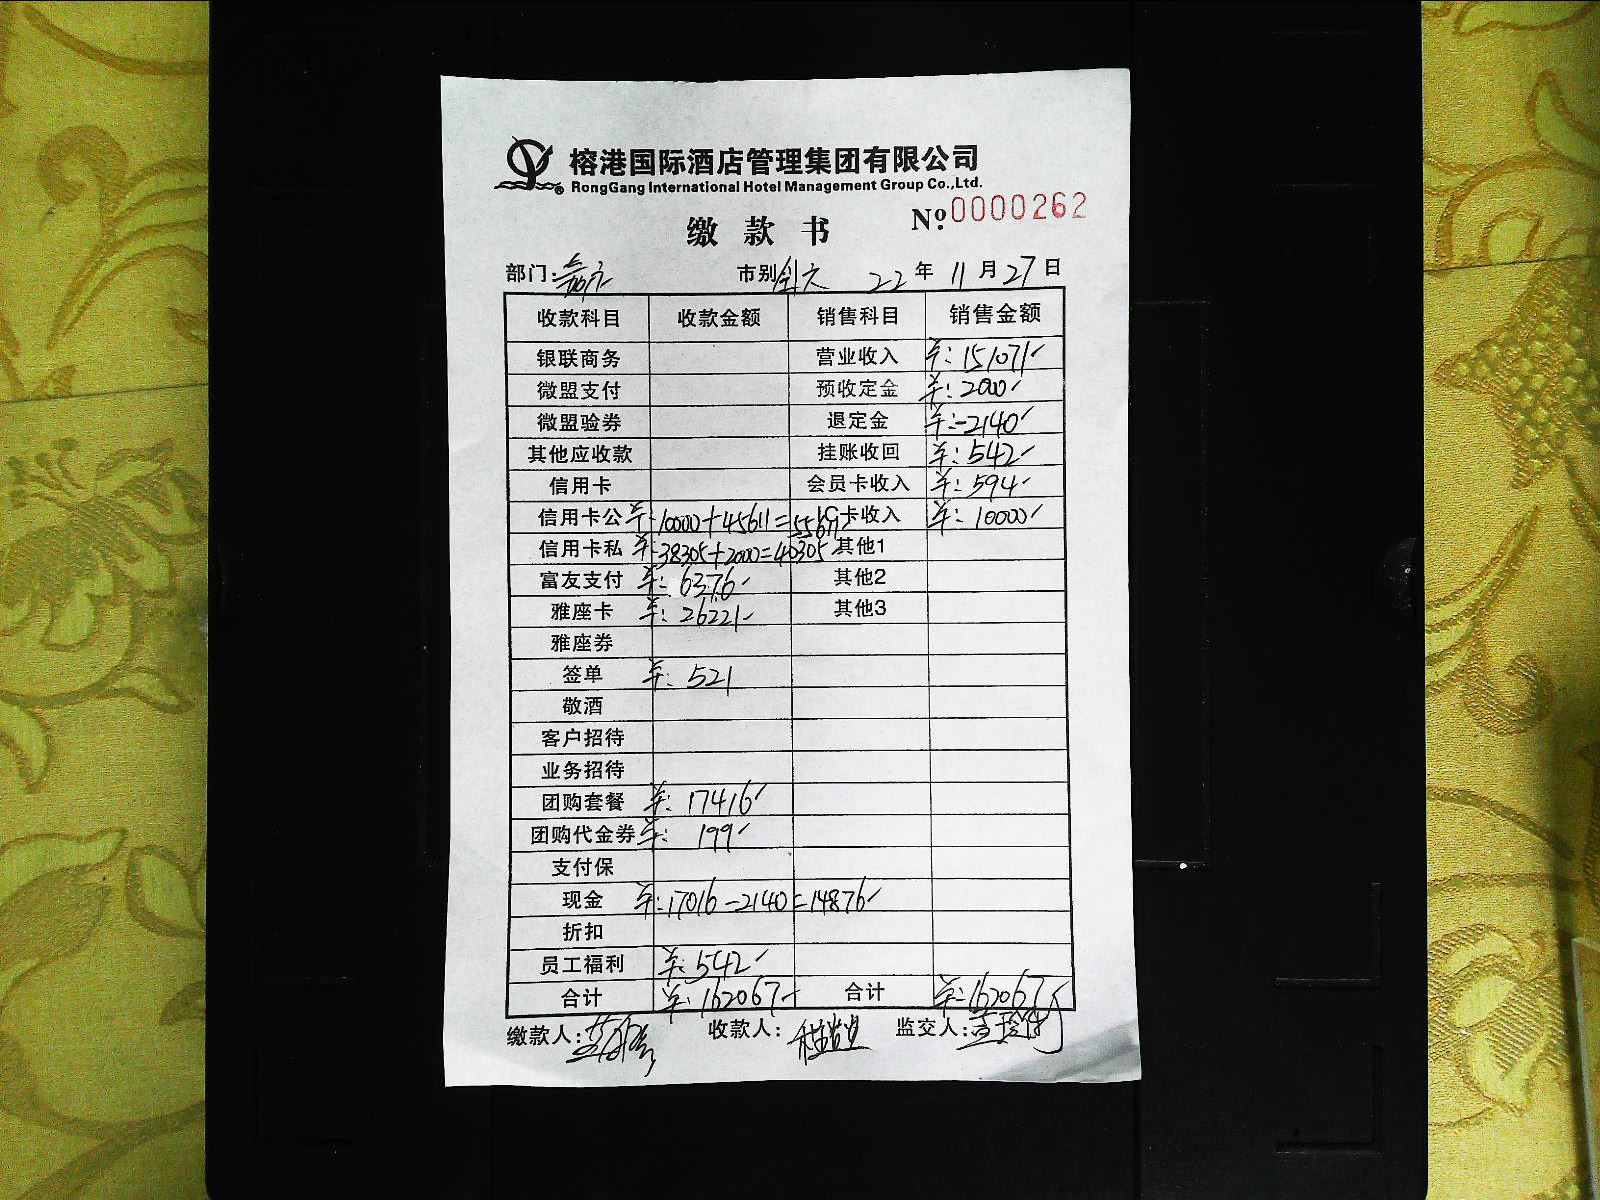 榕港国际酒店管理集团有限公司
RongGang International Hotel Management Group Co.,Ltd.
缴款书 Nº:0000262
部门: 市别 22年11月27日
收款科目 收款金额 销售科目 销售金额
银联商务 营业收入 ¥:151071
微盟支付 预收定金 ¥:2000
微盟验券 退定金 ¥:-2140
其他应收款 挂账收回 ¥:542
信用卡 会员卡收入 ¥:594
信用卡公 ¥:10000+45611=55611 IC卡收入 ¥:10000
信用卡私 ¥:38305+2000=40305 其他1
富友支付 ¥:6376 其他2
雅座卡 ¥:26221 其他3
雅座券
签单 ¥:521
敬酒
客户招待
业务招待
团购套餐 ¥:17416
团购代金券 ¥:199
支付保
现金 ¥:17016-2140=14876
折扣
员工福利 ¥:542
合计 ¥:162067 合计 ¥:162067
缴款人: 收款人: 监交人: